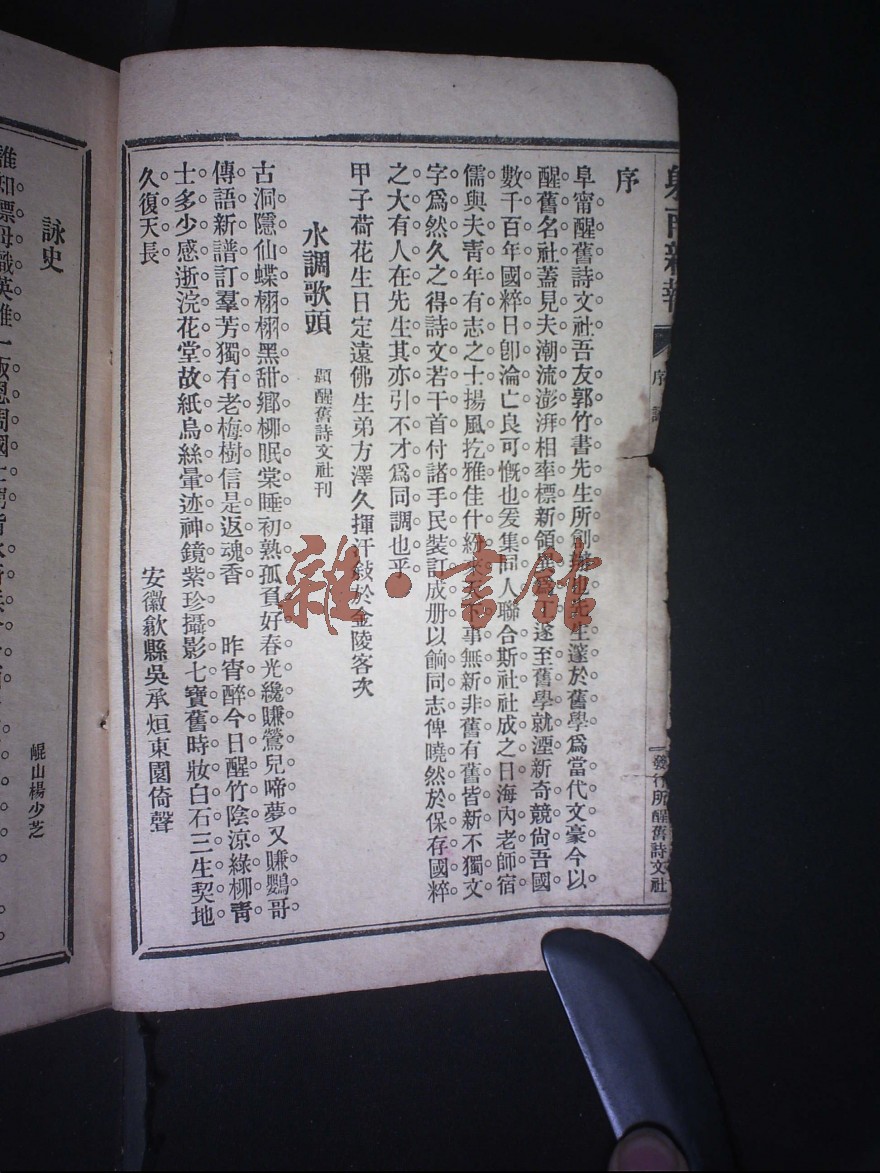 序
阜甯醒舊詩文社吾友郭竹書先生所創辦也先生邃於舊學爲當代文豪今以
醒舊名社蓋見夫潮流澎湃相率標新領異
遂至舊學就湮新奇競尙吾國
數千百年國粹日卽淪亡良可慨也爰集同人聯合斯社社成之日海內老師宿
儒與夫靑年有志之士揚風扢雅佳什紛來
事無新非舊有舊皆新不獨文
字爲然久之得詩文若干首付諸手民裝訂成册以餉同志俾曉然於保存國粹
之大有人在先生其亦引不才爲同調也乎
甲子荷花生日定遠佛生弟方澤久揮汗敍於金陵客次
水調歌頭
題醒舊詩文社刊
古洞隱仙蝶栩栩黑甜鄉柳眠棠睡初熟孤負好春光纔賺鶯兒啼夢又賺鸚哥
傳語新譜訂羣芳獨有老梅樹信是返魂香 昨宵醉今日醒竹陰涼綠柳靑
士多少感逝浣花堂故紙烏絲暈迹神鏡紫珍攝影七寶舊時妝白石三生契地
久復天長
安徽歙縣吳承烜東園倚聲
發行所醒舊詩文社
詠史
崐山楊少芝
雜·書館